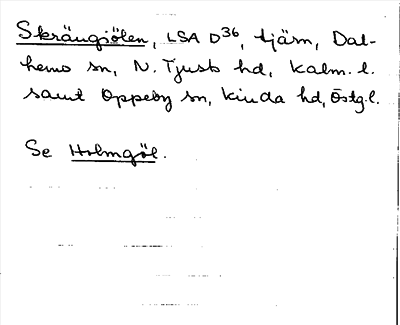 Skrängiölen, LSA D36, tjärn, Dal-
hems sn, N. Tjusts hd, Kalm. l.
samt Oppeby sn, Kinda hd, Östg. l.
Se Holmgöl.